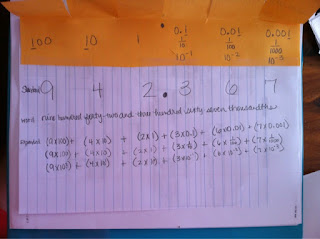 100 10 1 0.1 0.01 0.001
1/10 1/100 1/1000
10⁻¹ 10⁻² 10⁻³
Standard 9 4 2.3 6 7
word nine hundred forty-two and three hundred sixty seven thousandths
expanded (9x100)+ (4x10) + (2x1) + (3x0.1)+ (6x0.01)+(7x0.001)
(9x100) + (4x10) + (2x1) + (3x1/10) + (6x1/100)+(7x1/1000)
(9x10²) + (4x10¹) + (2x10⁰) + (3x10⁻¹) + (6x10⁻²)+(7x10⁻³)